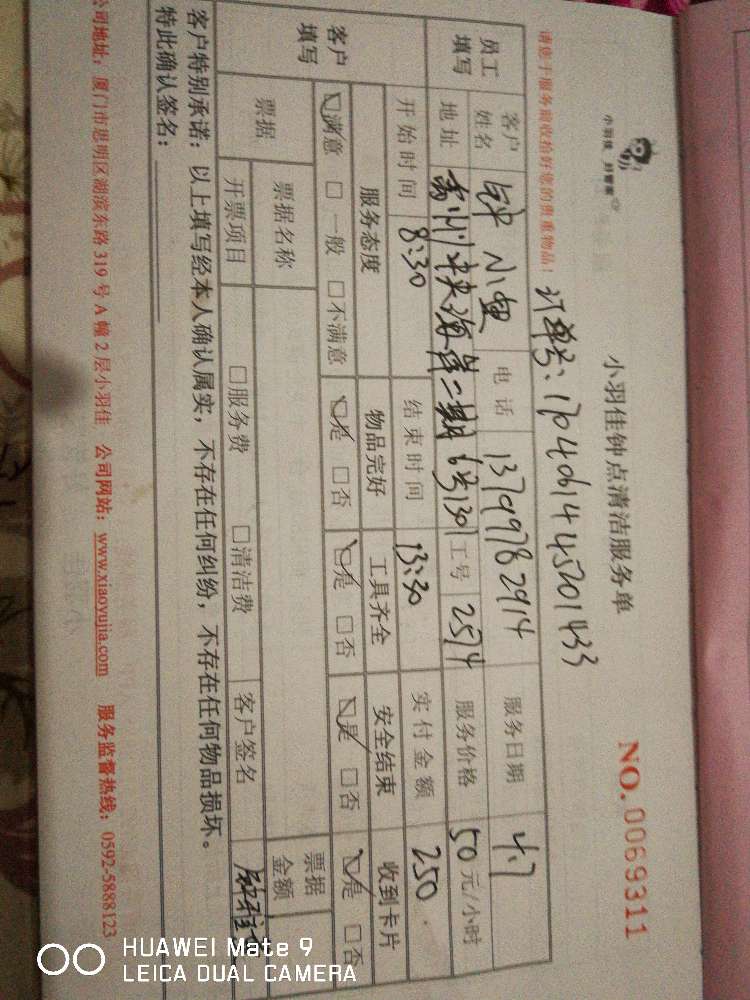 小羽佳 好管家
小羽佳钟点清洁服务单
NO. 0069311
请您于服务前收拾好您的贵重物品！
订单号：1704061445201433
员工填写 客户姓名 钟小 电话 13799782914 服务日期 4.7
地址 禹州中央海岸二期6号1301 工号 2574 服务价格 50元/小时
开始时间 8:30 结束时间 13:30 实付金额 250
客户填写 服务态度 物品完好 工具齐全 安全结束 收到卡片
☑满意 □一般 □不满意 ☑是 □否 ☑是 □否 ☑是 □否 ☑是 □否
票据 票据名称 票据金额
开票项目 □服务费 □清洁费 客户签名
客户特别承诺：以上填写经本人确认属实，不存在任何纠纷，不存在任何物品损坏。
特此确认签名：
公司地址：厦门市思明区湖滨东路319号A幢2层小羽佳 公司网站：www.xiaoyujia.com 服务监督热线：0592-5888123
HUAWEI Mate 9
LEICA DUAL CAMERA